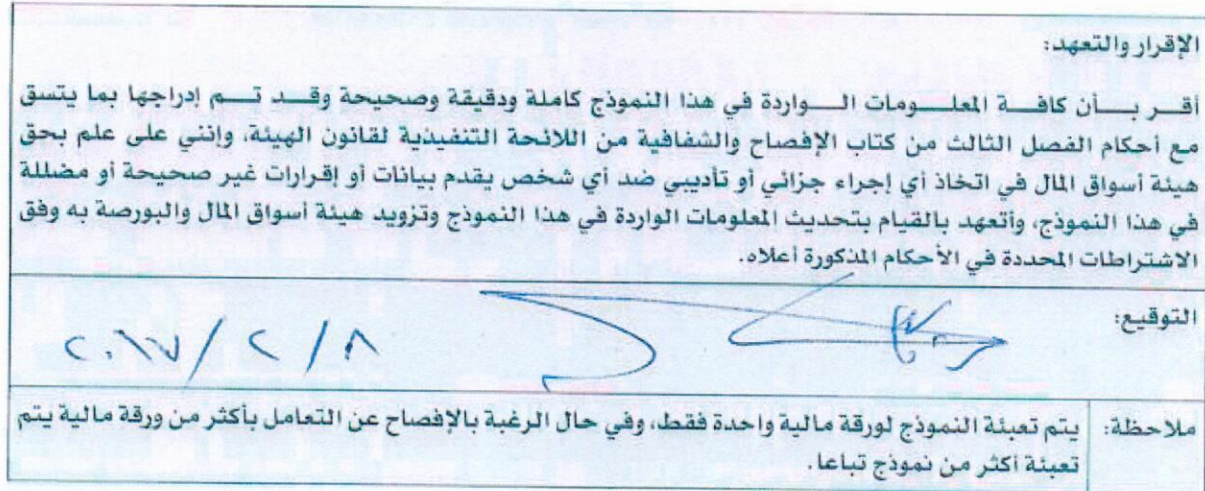 الإقرار والتعهد:
أقر بأن كافة المعلومات الواردة في هذا النموذج كاملة ودقيقة وصحيحة وقد تم إدراجها بما يتسق
مع أحكام الفصل الثالث من كتاب الإفصاح والشفافية من اللائحة التنفيذية لقانون الهيئة، وإنني على علم بحق
هيئة أسواق المال في اتخاذ أي إجراء جزائي أو تأديبي ضد أي شخص يقدم بيانات أو إقرارات غير صحيحة أو مضللة
في هذا النموذج، وأتعهد بالقيام بتحديث المعلومات الواردة في هذا النموذج وتزويد هيئة أسواق المال والبورصة به وفق
الاشتراطات المحددة في الأحكام المذكورة أعلاه.
التوقيع:
٢٠١٧/٢/٨
ملاحظة: يتم تعبئة النموذج لورقة مالية واحدة فقط، وفي حال الرغبة بالإفصاح عن التعامل بأكثر من ورقة مالية يتم
تعبئة أكثر من نموذج تباعا.